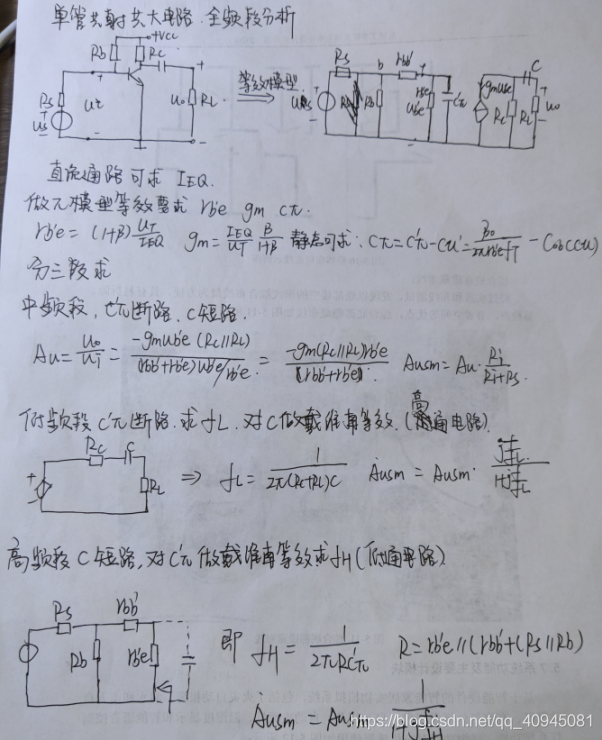 单管共射放大电路 全频段分析
+Vcc
Rb Rc
Rs
us
ui
uo RL
等效模型
Rs b rbb' C
us Rb rb'e Ub'e C'π gmUb'e Rc RL uo
直流通路可求 IEQ.
做π模型等效要求 rb'e gm Cπ.
rb'e = (1+β) UT/IEQ gm = IEQ/UT β/1+β 静态可求: Cπ = C'π - Cu' = β0/2πrb'efT - Cob(Cu)
分三段求
中频段, C'π断路. C短路.
Au = Uo/Ui = -gmUb'e (Rc//RL)/(rbb'+rb'e)Ub'e/rb'e = -gm(Rc//RL)rb'e/(rbb'+rb'e) Ausm = Au· Ri/Ri+Rs.
低频段 C'π断路. 求fL. 对C做戴维南等效. (高通电路)
Rc C
RL ⇒ fL = 1/2π(Rc+RL)C Ausm = Ausm· jf/fL/1+jf/fL
高频段 C短路, 对C'π做戴维南等效求fH (低通电路)
Rs rbb'
Rb rb'e
即 fH = 1/2πRC'π R = rb'e//(rbb'+(Rs//Rb)
Ausm = Ausm 1/1+jf/fH
https://blog.csdn.net/qq_40945081